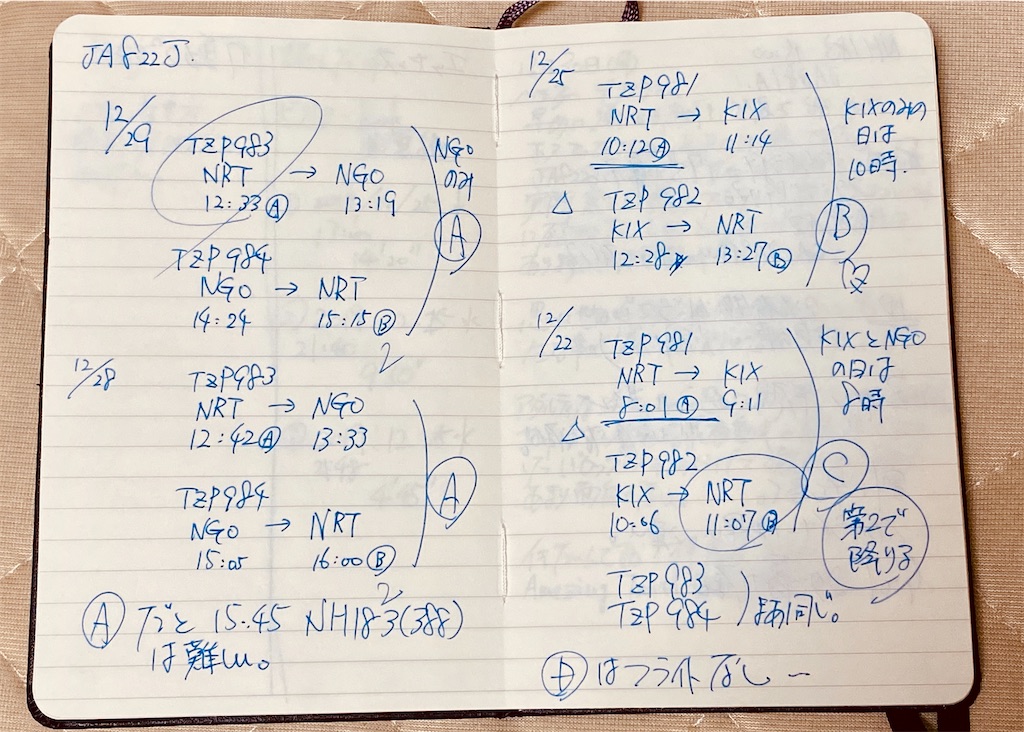 JA822J.
12/29
TZP983
NRT → NGO
12:33Ⓐ 13:19
TZP984
NGO → NRT
14:24 15:15Ⓑ
2
NGO
のみ
Ⓐ
12/28
TZP983
NRT → NGO
12:42Ⓐ 13:33
TZP984
NGO → NRT
15:05 16:00Ⓑ
2
Ⓐ
Ⓐ だと 15:45 NH183(388)
は難しい。
12/25
TZP981
NRT → KIX
10:12Ⓐ 11:14
△ TZP982
KIX → NRT
12:28 13:27Ⓑ
KIXのみの
日は
10時.
Ⓑ
12/22
TZP981
NRT → KIX
8:01Ⓐ 9:11
△
TZP982
KIX → NRT
10:06 11:07Ⓑ
KIXとNGO
の日は
8時
Ⓒ
第2で
降りる
TZP983
TZP984
まあ同じ。
はフライトなし